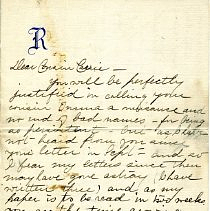 R
Dear Cousin Essie —
You will be perfectly
justified in calling your
cousin Emma a nuisance and
no end of bad names — for being
so persistent — but as I have
not heard from you since
your letter in Sept — and as
I fear my letters since then
may have gone astray (I have
written twice) and, as my
paper is to be read in two weeks